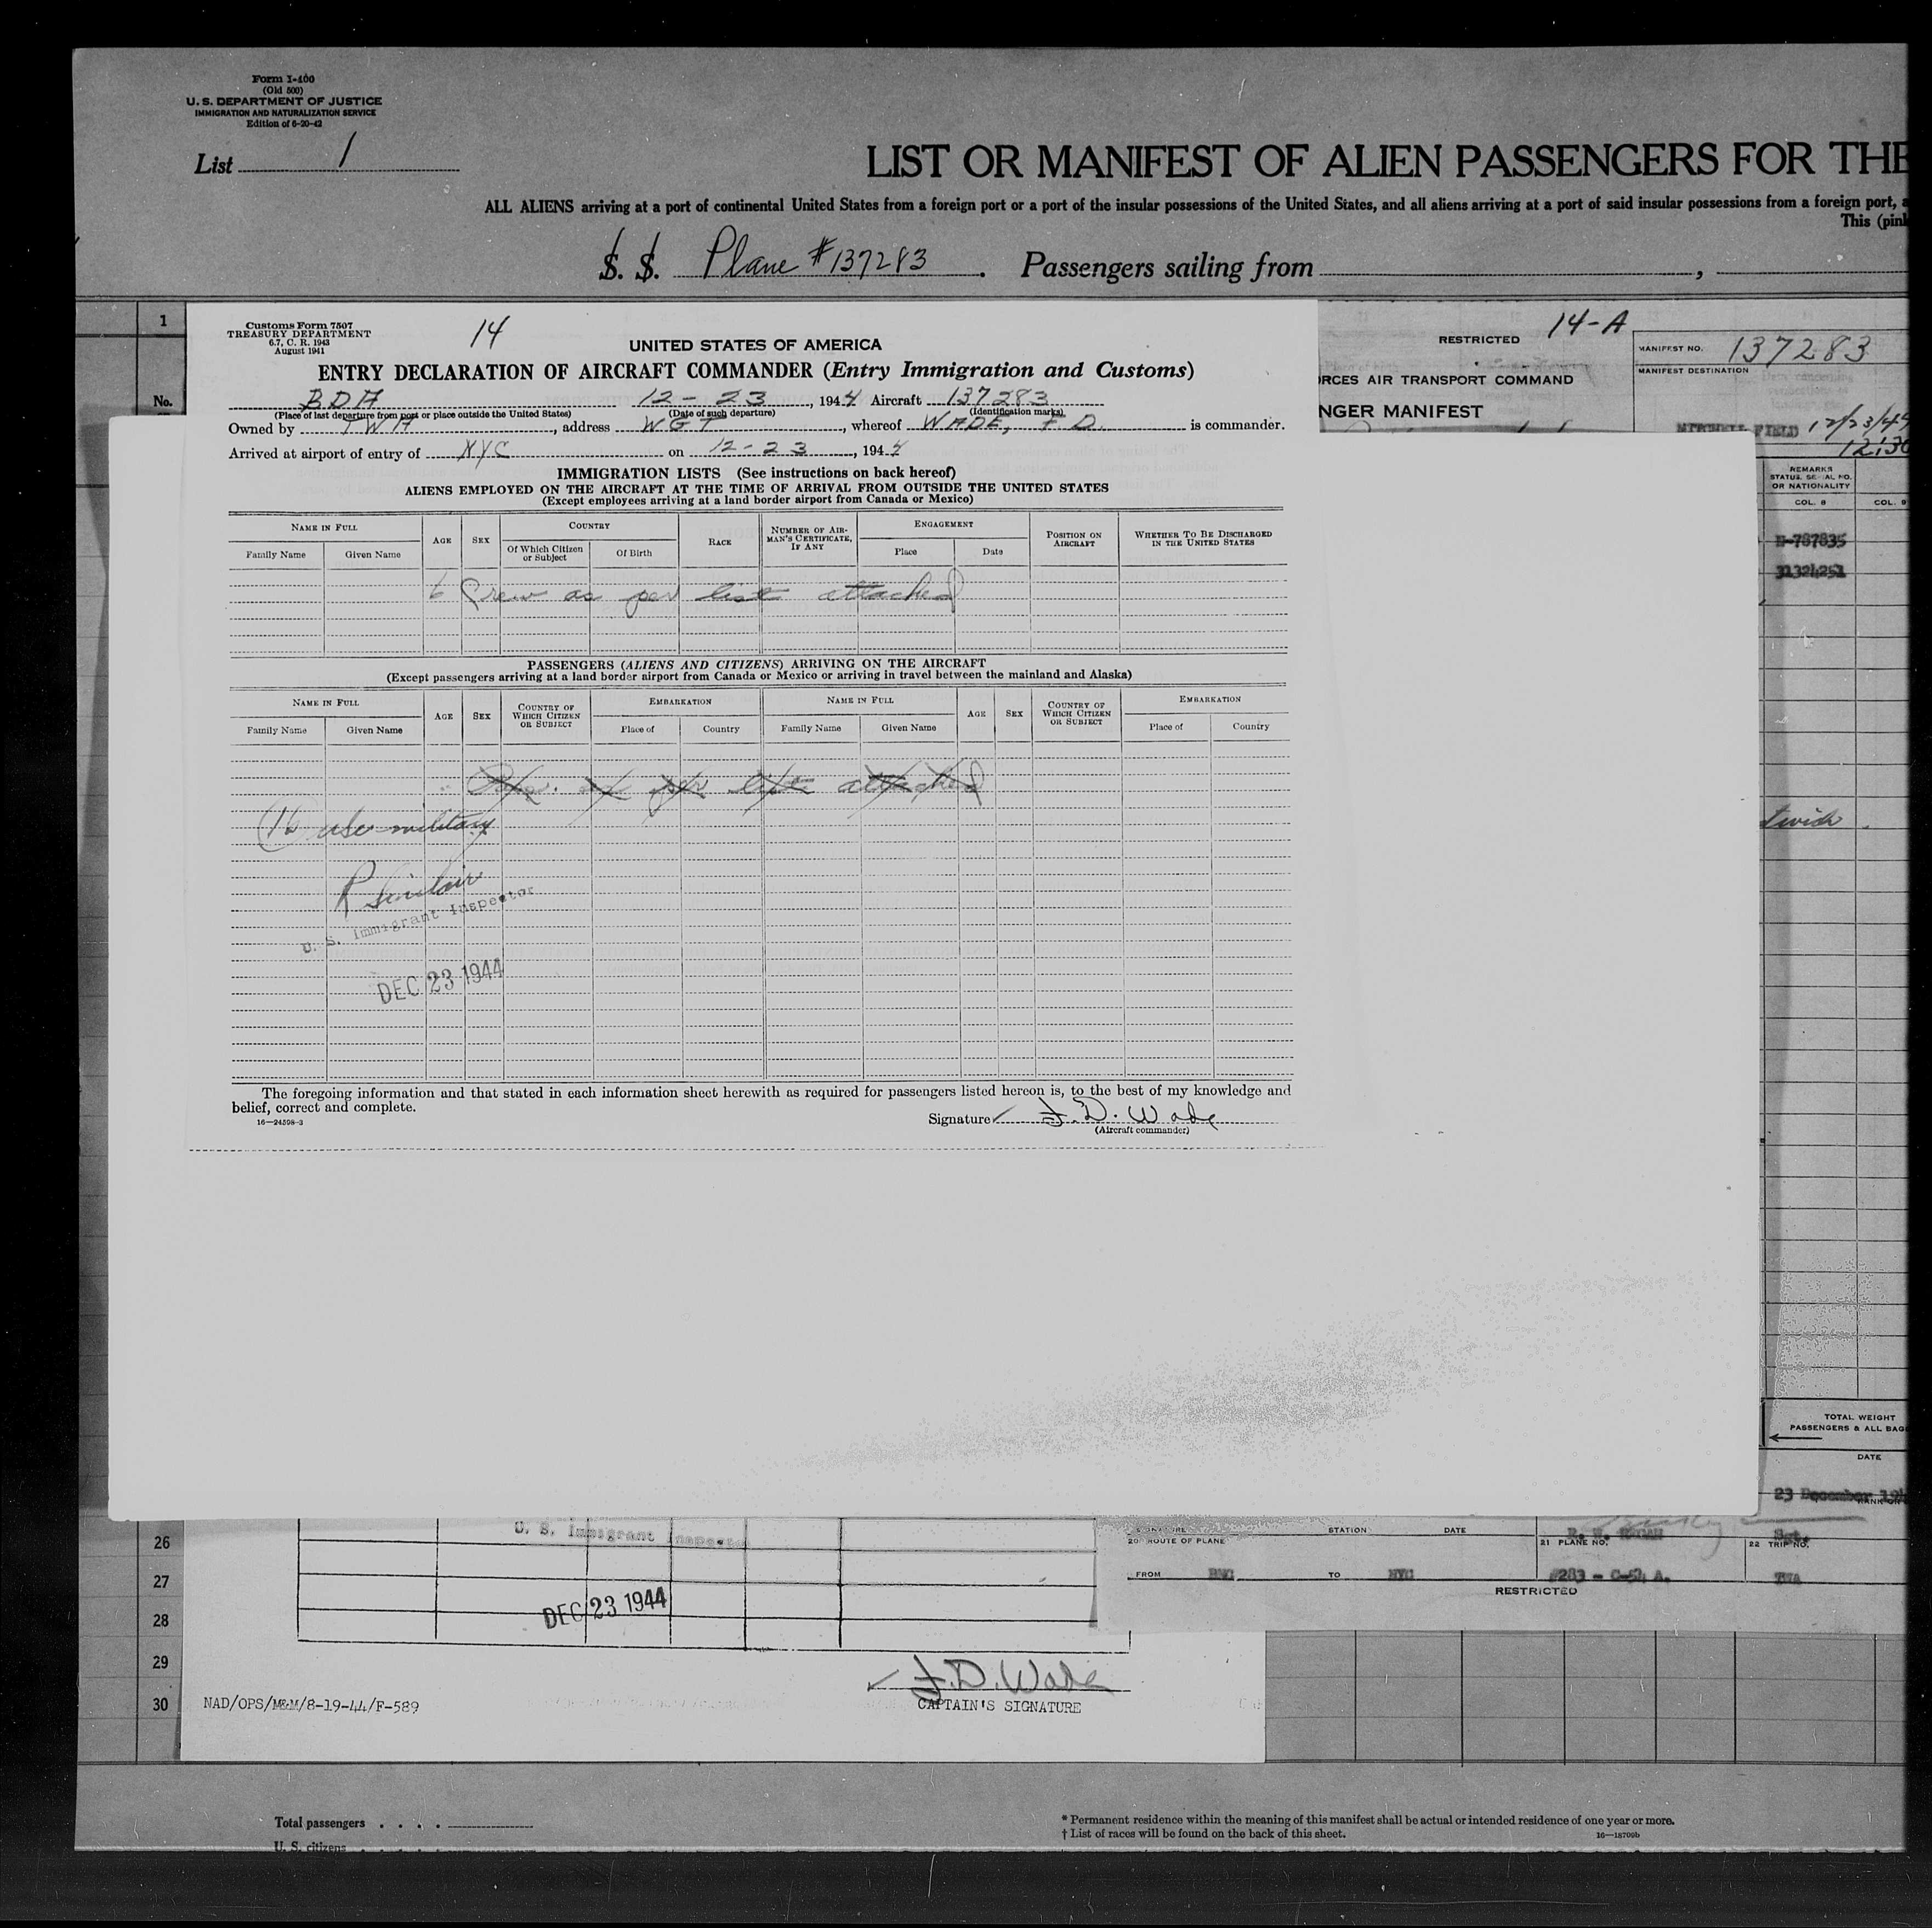 Form I-400
(Old 500)
U. S. DEPARTMENT OF JUSTICE
IMMIGRATION AND NATURALIZATION SERVICE
Edition of 6-20-42
List 1
LIST OR MANIFEST OF ALIEN PASSENGERS FOR THE
ALL ALIENS arriving at a port of continental United States from a foreign port or a port of the insular possessions of the United States, and all aliens arriving at a port of said insular possessions from a foreign port, a
This (pink
S. S. Plane #137283 . Passengers sailing from ,
1
No.
Customs Form 7507
TREASURY DEPARTMENT
6.7, C. R. 1943
August 1941
14
UNITED STATES OF AMERICA
ENTRY DECLARATION OF AIRCRAFT COMMANDER (Entry Immigration and Customs)
BDA 12-23, 1944 Aircraft 137283
(Place of last departure from port or place outside the United States) (Date of such departure) (Identification marks)
Owned by TWA, address WGT, whereof WADE, F. D. is commander.
Arrived at airport of entry of NYC on 12-23, 1944
IMMIGRATION LISTS (See instructions on back hereof)
ALIENS EMPLOYED ON THE AIRCRAFT AT THE TIME OF ARRIVAL FROM OUTSIDE THE UNITED STATES
(Except employees arriving at a land border airport from Canada or Mexico)
NAME IN FULL AGE SEX COUNTRY RACE NUMBER OF AIRMAN'S CERTIFICATE, IF ANY ENGAGEMENT POSITION ON AIRCRAFT WHETHER TO BE DISCHARGED IN THE UNITED STATES
Family Name Given Name Of Which Citizen or Subject Of Birth Place Date
6 Crew as per list attached
PASSENGERS (ALIENS AND CITIZENS) ARRIVING ON THE AIRCRAFT
(Except passengers arriving at a land border airport from Canada or Mexico or arriving in travel between the mainland and Alaska)
NAME IN FULL AGE SEX COUNTRY OF WHICH CITIZEN OR SUBJECT EMBARKATION NAME IN FULL AGE SEX COUNTRY OF WHICH CITIZEN OR SUBJECT EMBARKATION
Family Name Given Name Place of Country Family Name Given Name Place of Country
Pass. as per list attached
16 usc military
R Sinclair
U. S. Immigrant Inspector
DEC 23 1944
The foregoing information and that stated in each information sheet herewith as required for passengers listed hereon is, to the best of my knowledge and
belief, correct and complete.
16—24598-3
Signature F. D. Wade
(Aircraft commander)
RESTRICTED 14-A
MANIFEST NO. 137283
MANIFEST DESTINATION
ORCES AIR TRANSPORT COMMAND
NGER MANIFEST
MITCHELL FIELD 12/23/44
12:30
REMARKS
STATUS, SERIAL NO.
OR NATIONALITY
COL. 8 COL. 9
31324251
TOTAL WEIGHT
PASSENGERS & ALL BAG
DATE
23 December 194
26
27
28
29
30
U. S. Immigrant Inspector
DEC 23 1944
SIGNATURE STATION DATE
Sgt.
20 ROUTE OF PLANE 21 PLANE NO. 22 TRIP NO.
FROM TO NYC #283 - C-54 A. TWA
RESTRICTED
F. D. Wade
NAD/OPS/M&M/8-19-44/F-589
CAPTAIN'S SIGNATURE
Total passengers . . . .
U. S. citizens
* Permanent residence within the meaning of this manifest shall be actual or intended residence of one year or more.
† List of races will be found on the back of this sheet.
16—18709b